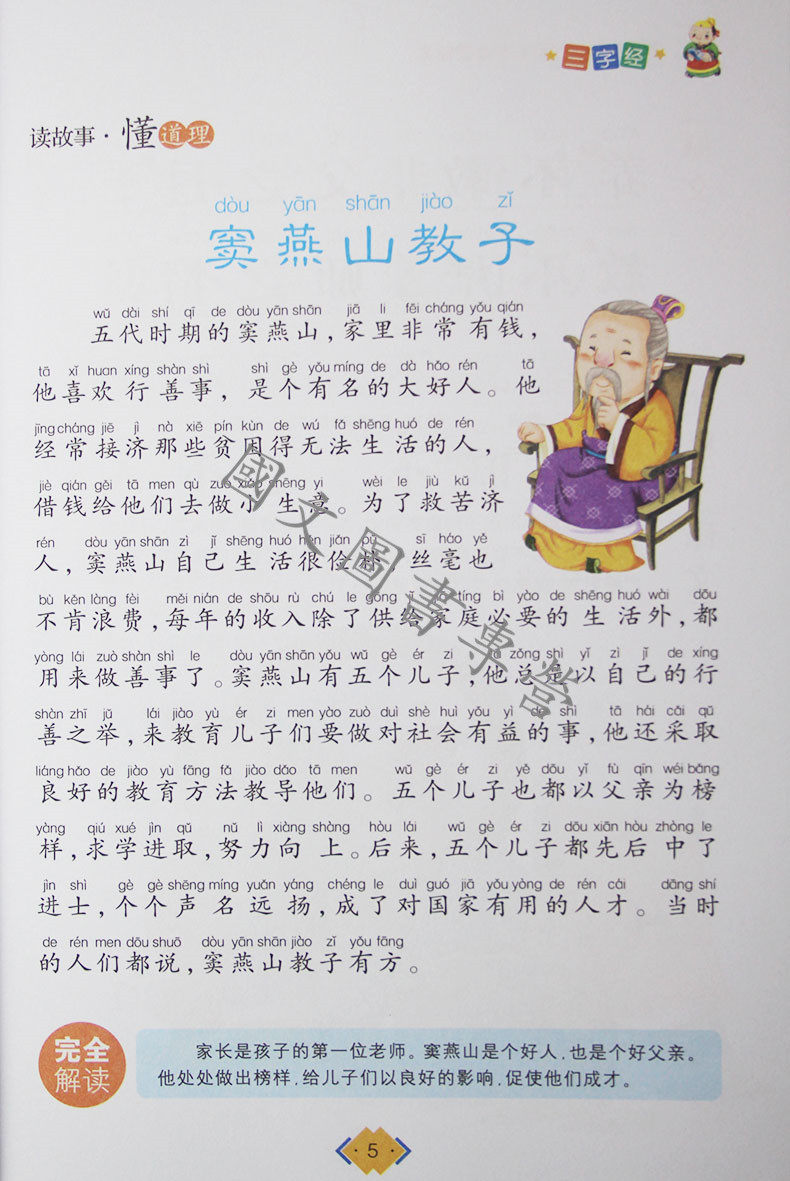 三字经
读故事·懂道理
dòu yān shān jiào zǐ
窦燕山教子
wǔ dài shí qī de dòu yān shān jiā li fēi cháng yǒu qián
五代时期的窦燕山，家里非常有钱，
tā xǐ huan xíng shàn shì shì gè yǒu míng de dà hǎo rén tā
他喜欢行善事，是个有名的大好人。他
jīng cháng jiē jì nà xiē pín kùn de wú fǎ shēng huó de rén
经常接济那些贫困得无法生活的人，
jiè qián gěi tā men qù zuò xiǎo shēng yi wèi le jiù kǔ jì
借钱给他们去做小生意。为了救苦济
rén dòu yān shān zì jǐ shēng huó hěn jiǎn pǔ sī háo yě
人，窦燕山自己生活很俭朴，丝毫也
bù kěn làng fèi měi nián de shōu rù chú le gōng jǐ jiā tíng bì yào de shēng huó wài dōu
不肯浪费，每年的收入除了供给家庭必要的生活外，都
yòng lái zuò shàn shì le dòu yān shān yǒu wǔ gè ér zi tā zǒng shì yǐ zì jǐ de xíng
用来做善事了。窦燕山有五个儿子，他总是以自己的行
shàn zhī jǔ lái jiào yù ér zi men yào zuò duì shè huì yǒu yì de shì tā hái cǎi qǔ
善之举，来教育儿子们要做对社会有益的事，他还采取
liáng hǎo de jiào yù fāng fǎ jiào dǎo tā men wǔ gè ér zi yě dōu yǐ fù qīn wéi bǎng
良好的教育方法教导他们。五个儿子也都以父亲为榜
yàng qiú xué jìn qǔ nǔ lì xiàng shàng hòu lái wǔ gè ér zi dōu xiān hòu zhòng le
样，求学进取，努力向上。后来，五个儿子都先后中了
jìn shì gè gè shēng míng yuǎn yáng chéng le duì guó jiā yǒu yòng de rén cái dāng shí
进士，个个声名远扬，成了对国家有用的人才。当时
de rén men dōu shuō dòu yān shān jiào zǐ yǒu fāng
的人们都说，窦燕山教子有方。
國文圖書專營
完全
解读
家长是孩子的第一位老师。窦燕山是个好人，也是个好父亲。
他处处做出榜样，给儿子们以良好的影响，促使他们成才。
5